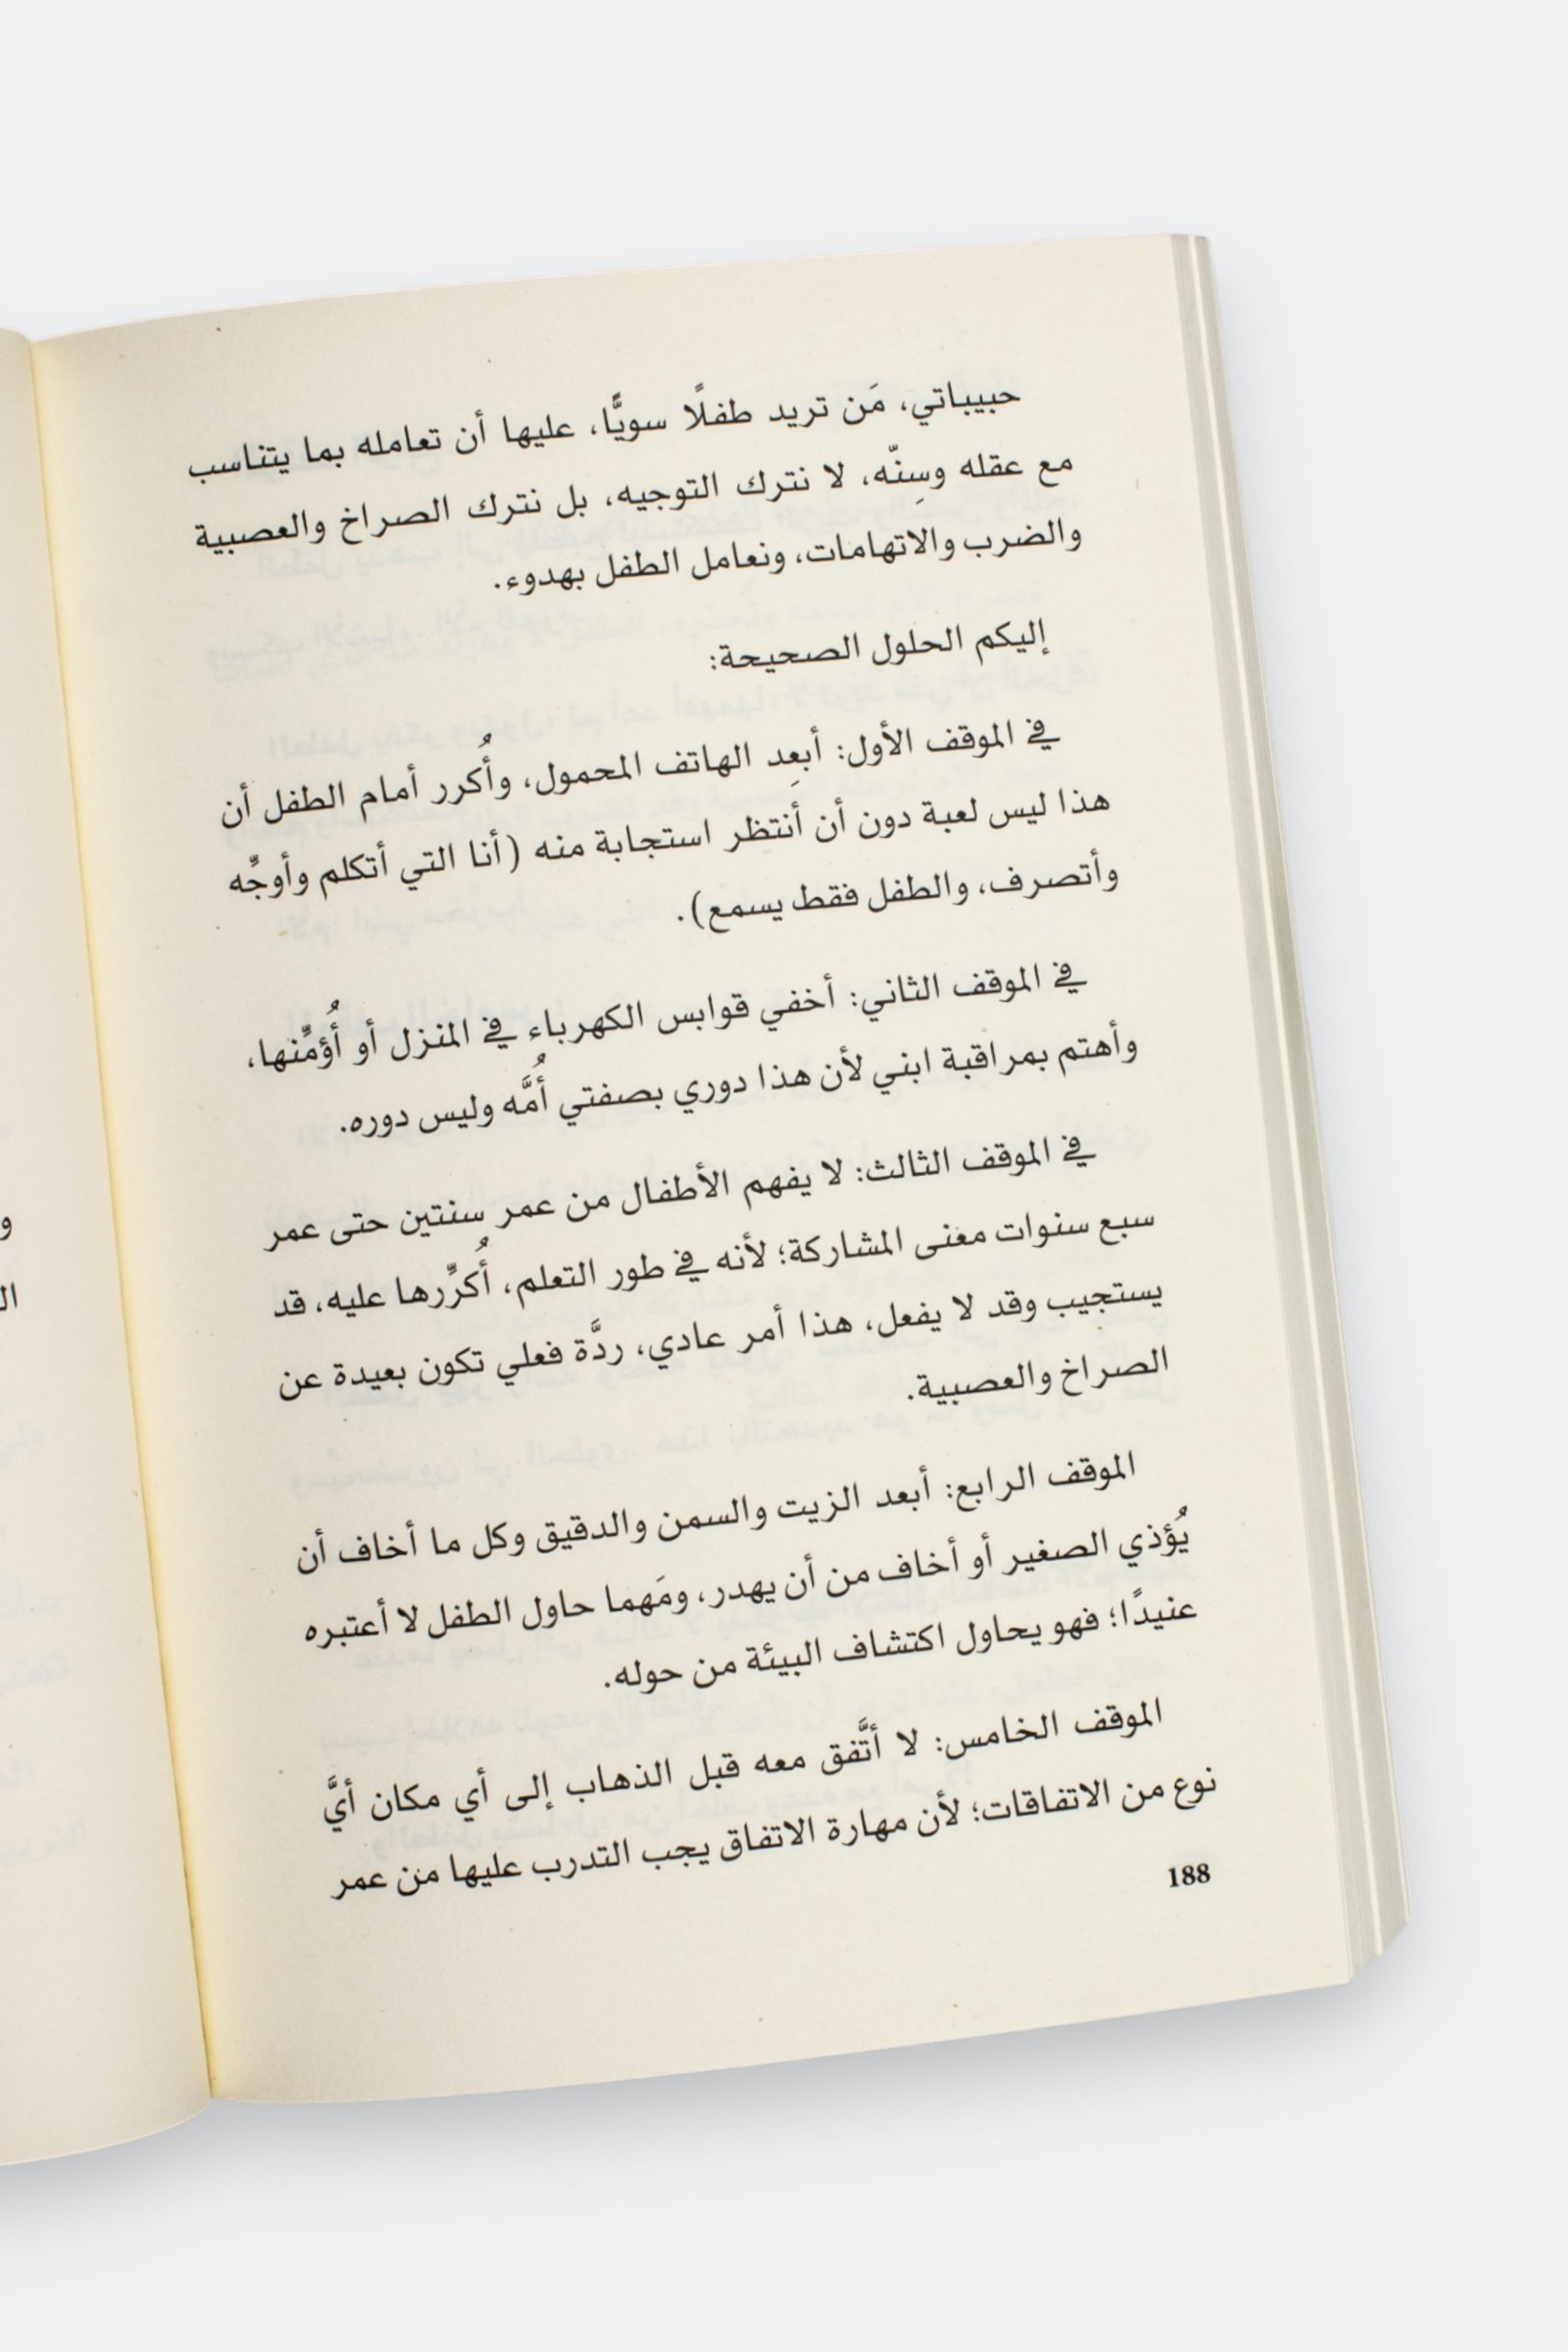 حبيباتي، مَن تريد طفلًا سويًّا، عليها أن تعامله بما يتناسب
مع عقله وسِنّه، لا نترك التوجيه، بل نترك الصراخ والعصبية
والضرب والاتهامات، ونعامل الطفل بهدوء.
إليكم الحلول الصحيحة:
في الموقف الأول: أبعِد الهاتف المحمول، وأُكرر أمام الطفل أن
هذا ليس لعبة دون أن أنتظر استجابة منه (أنا التي أتكلم وأوجِّه
وأتصرف، والطفل فقط يسمع).
في الموقف الثاني: أخفي قوابس الكهرباء في المنزل أو أُؤمِّنها،
وأهتم بمراقبة ابني لأن هذا دوري بصفتي أُمَّه وليس دوره.
في الموقف الثالث: لا يفهم الأطفال من عمر سنتين حتى عمر
سبع سنوات معنى المشاركة؛ لأنه في طور التعلم، أُكرِّرها عليه، قد
يستجيب وقد لا يفعل، هذا أمر عادي، ردَّة فعلي تكون بعيدة عن
الصراخ والعصبية.
الموقف الرابع: أبعد الزيت والسمن والدقيق وكل ما أخاف أن
يُؤذي الصغير أو أخاف من أن يهدر، ومَهما حاول الطفل لا أعتبره
عنيدًا؛ فهو يحاول اكتشاف البيئة من حوله.
الموقف الخامس: لا أتَّفق معه قبل الذهاب إلى أي مكان أيَّ
نوع من الاتفاقات؛ لأن مهارة الاتفاق يجب التدرب عليها من عمر
188